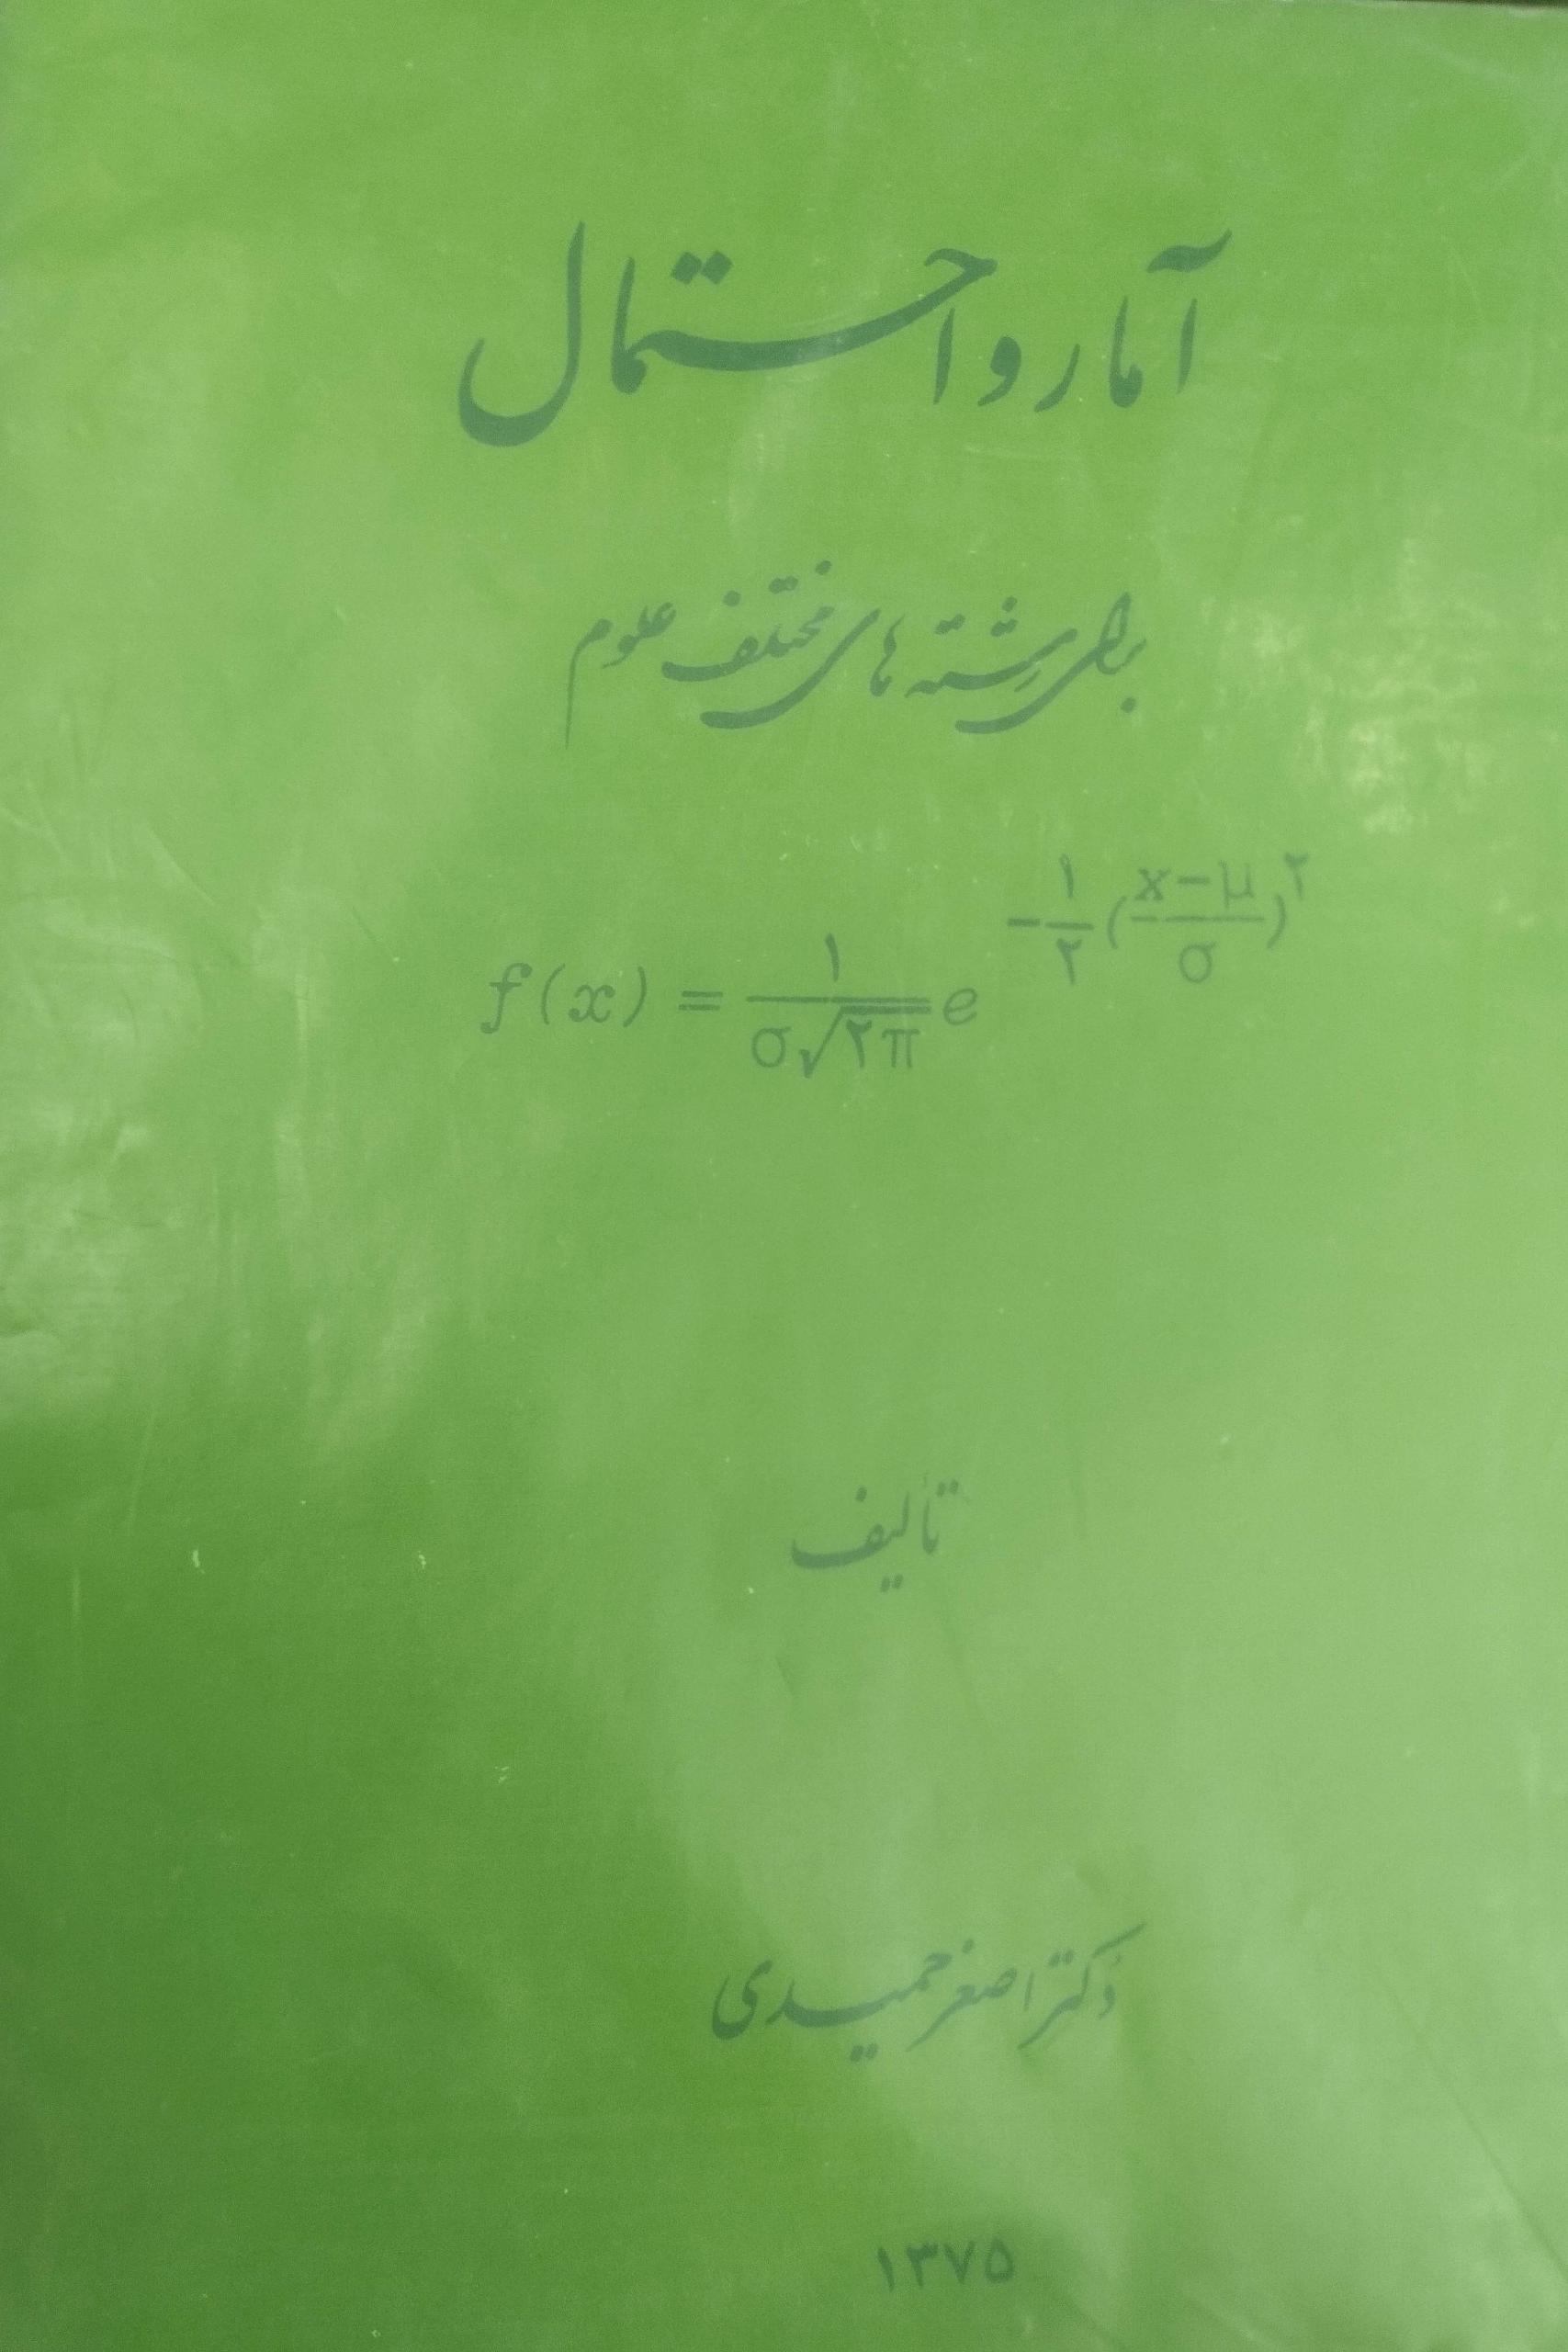 آمار و احتمال
برای رشته های مختلف علوم
f(x) = ۱/(σ√۲π) e^(-۱/۲ ((x-μ)/σ)^۲)
تألیف
دکتر اصغر حمیدی
۱۳۷۵